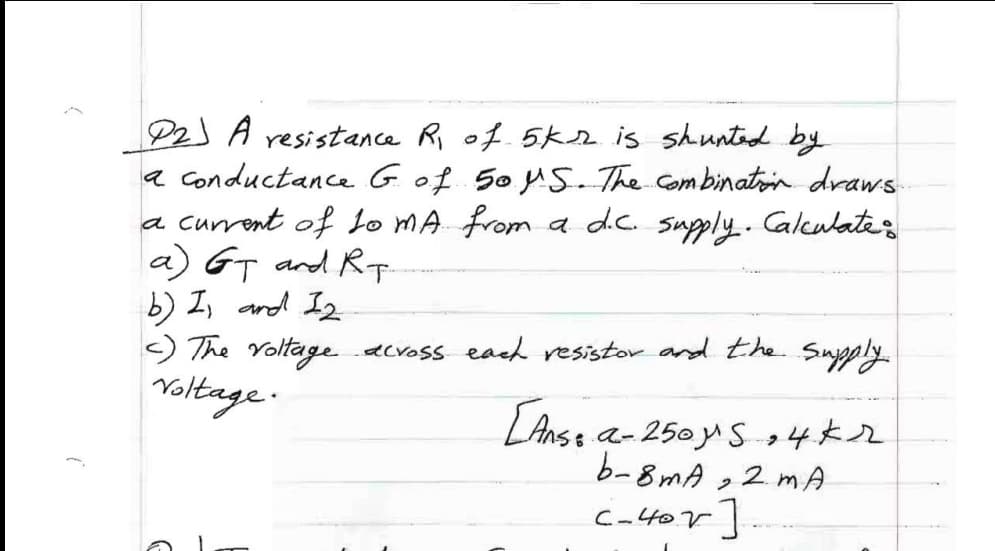 P2) A resistance R₁ of 5kΩ is shunted by
a conductance G of 50 μS. The combination draws
a current of 10 mA from a d.c. supply. Calculate:
a) G_T and R_T
b) I₁ and I₂
c) The Voltage across each resistor and the supply
Voltage.
[Ans: a- 250 μS, 4kΩ
b- 8mA, 2 mA
c- 40v]